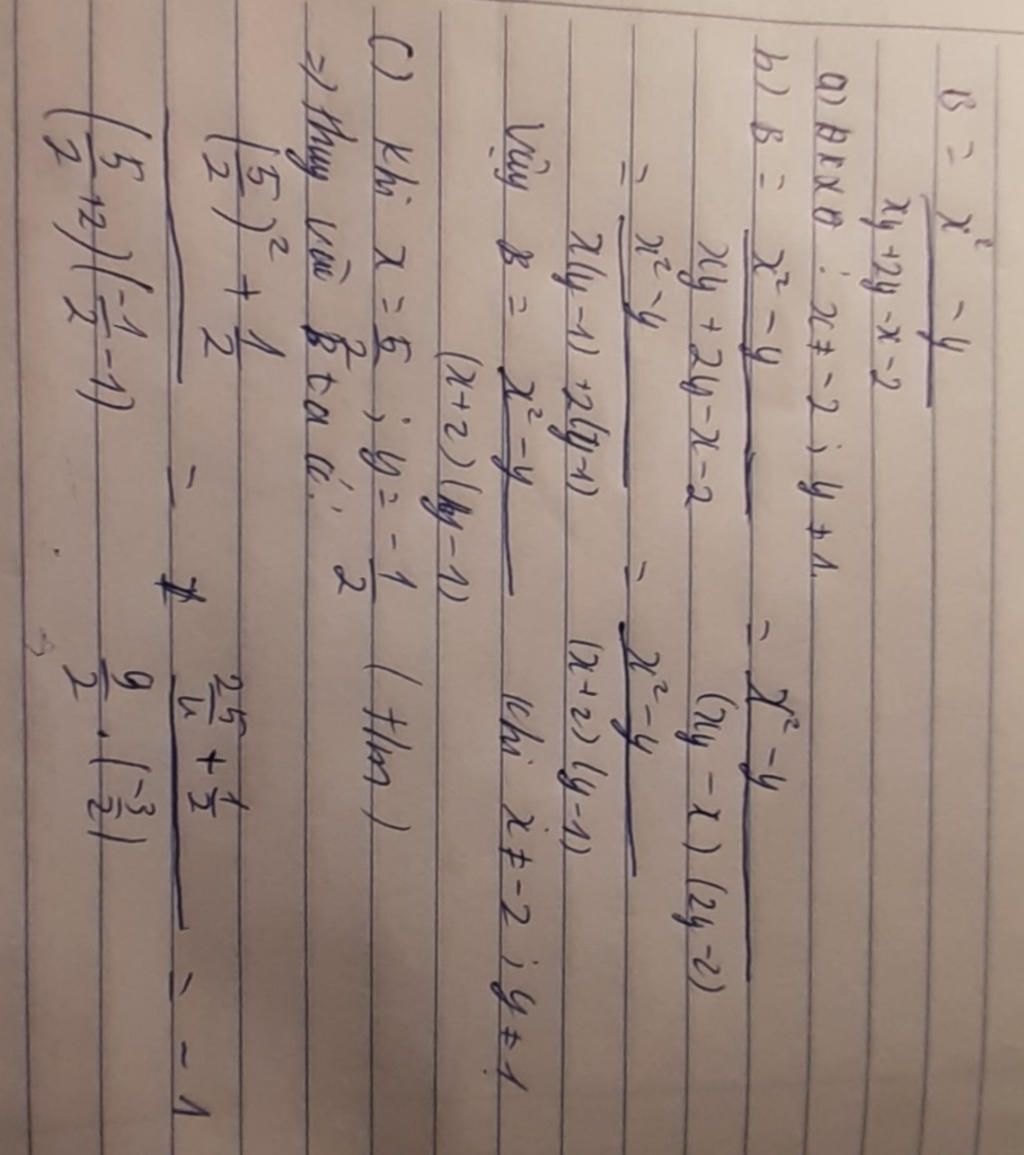 B = x² - y / xy + 2y - x - 2
a) ĐKXĐ : x ≠ -2 ; y ≠ 1
b) B = x² - y / xy + 2y - x - 2 = x² - y / (xy - x) (2y - 2)
= x² - y / x(y - 1) + 2(y - 1) = x² - y / (x + 2) (y - 1)
Vậy B = x² - y / (x + 2) (y - 1) khi x ≠ -2 ; y ≠ 1
c) Khi x = 5/2 ; y = -1/2 (t/m)
=> thay vào B ta có:
(5/2)² + 1/2 / (5/2 + 2) (-1/2 - 1) = 25/4 + 1/2 / 9/2 . (-3/2) = -1